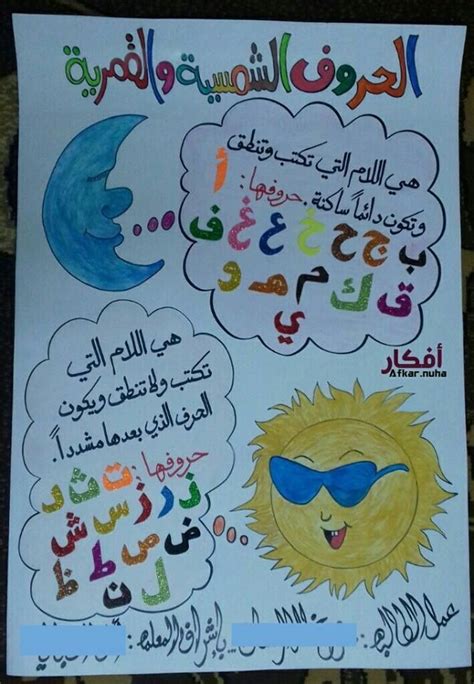 الحروف الشمسية والقمرية
هي اللام التي تكتب وتنطق
وتكون دائماً ساكنة. حروفها: أ
ب ج ح خ ع غ ف
ق ك م هـ و
ي
أفكار
Afkar.nuha
هي اللام التي
تكتب ولا تنطق ويكون
الحرف الذي بعدها مشدداً.
حروفها: ت ث د
ذ ر ز س ش
ض ص ط ظ
ل ن
عمل الطالبة: بإشراف المعلمة: